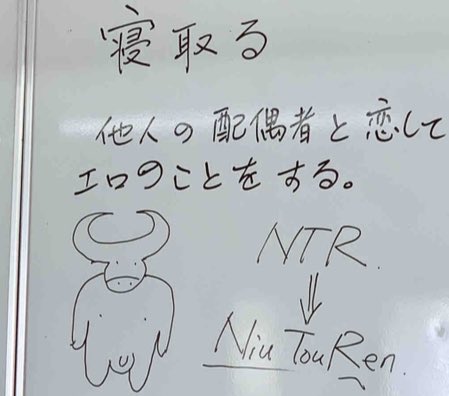 寝取る
他人の配偶者と恋して
エロのことをする。
NTR.
Niu TouRen.